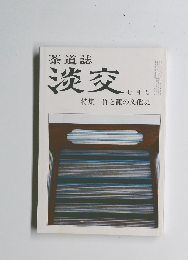 茶道誌
淡交
特集 竹と籠の文化史